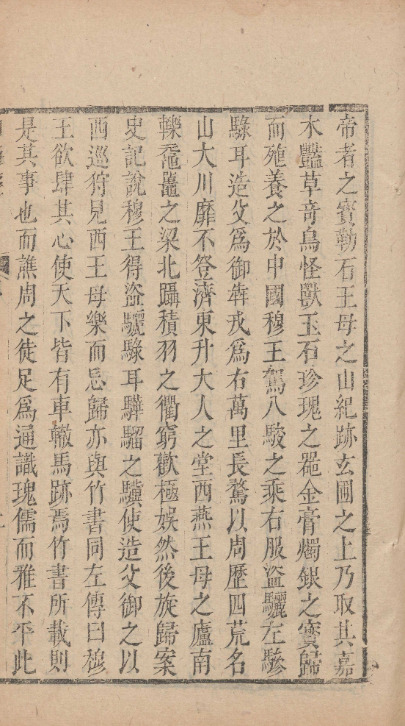 帝者之寳勒石王母之山紀跡玄圃之上乃取其嘉
木豔草奇鳥怪獸玉石珍瑰之噐金膏燭銀之寳歸
而殖養之於中國穆王駕八駿之乘右服盜驪左驂
騄耳造父爲御犇戎爲右萬里長騖以周歷四荒名
山大川靡不登濟東升大人之堂西燕王母之廬南
轢黿鼉之梁北躡積羽之衢窮歡極娛然後旋歸案
史記說穆王得盜驪騄耳驊騮之驥使造父御之以
西巡狩見西王母樂而忘歸亦與竹書同左傳曰穆
王欲肆其心使天下皆有車轍馬跡焉竹書所載則
是其事也而譙周之徒足爲通識瑰儒而雅不平此